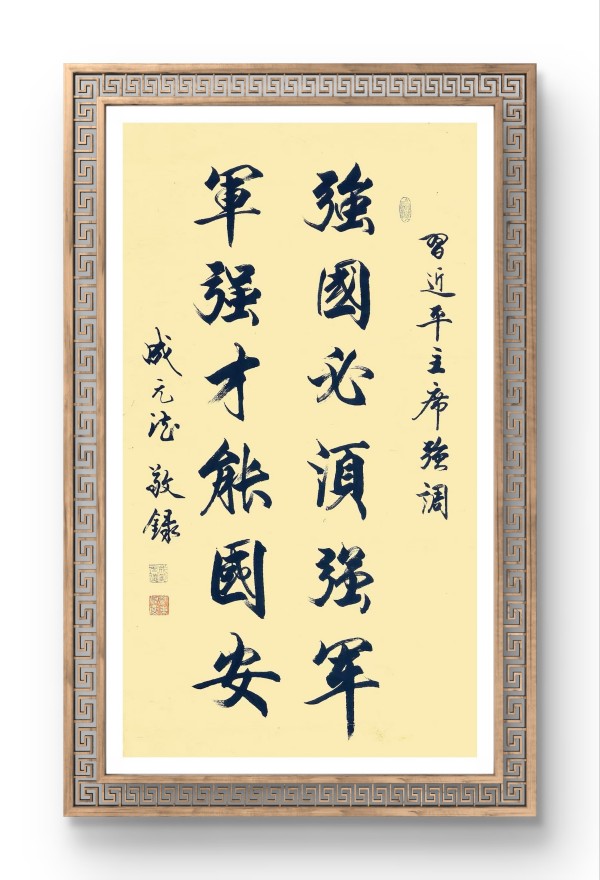 習近平主席強調
強國必須强军
軍强才能國安
成元浩 敬録